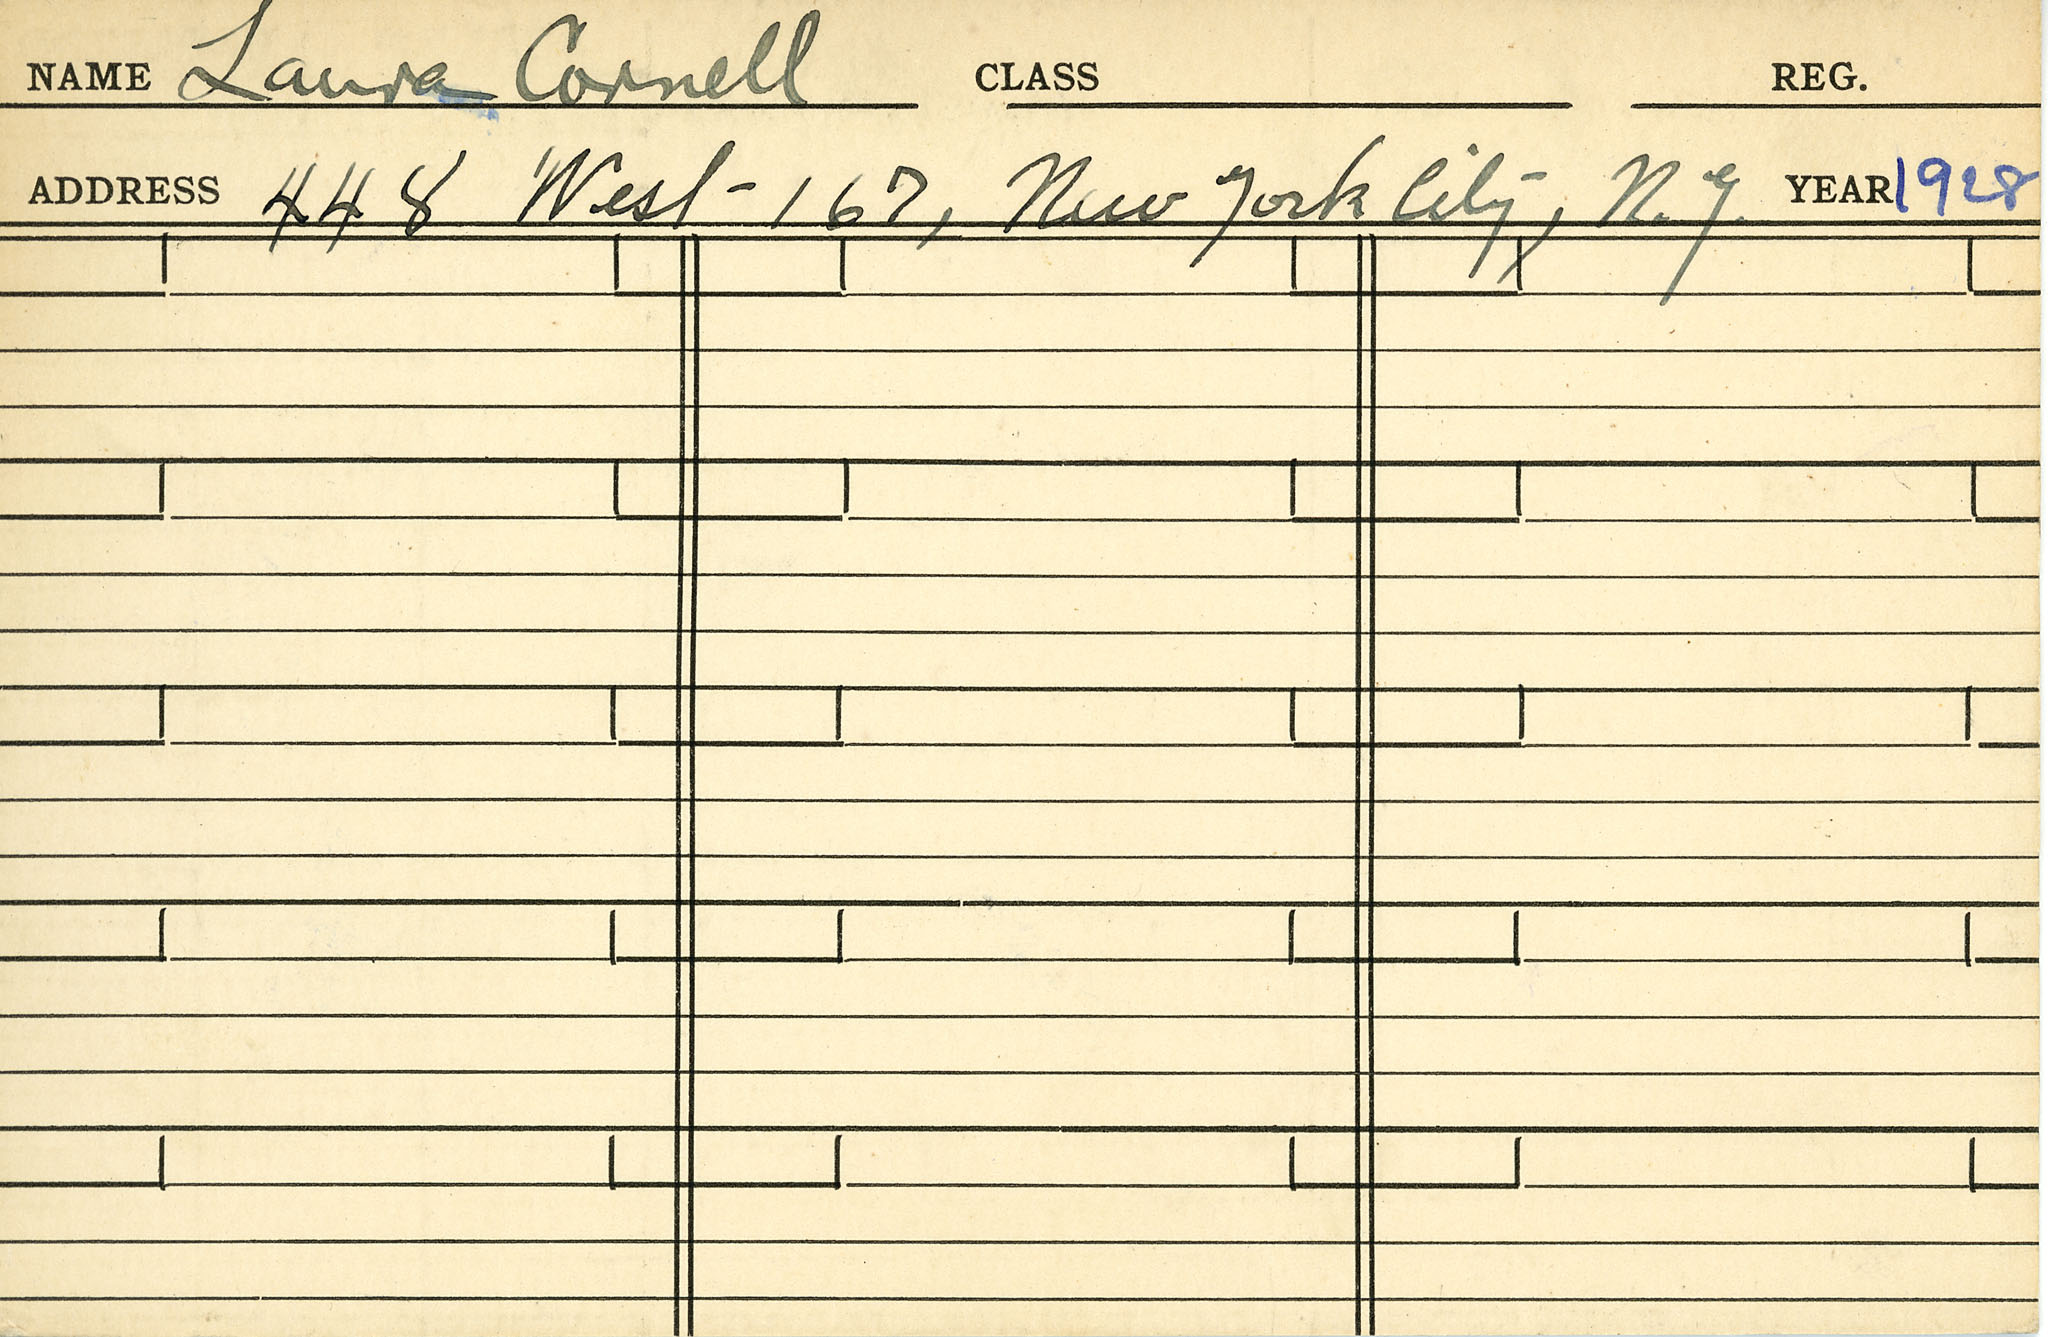 NAME Laura Cornell CLASS REG.
ADDRESS 448 West 167, New York City, N.Y. YEAR 1928